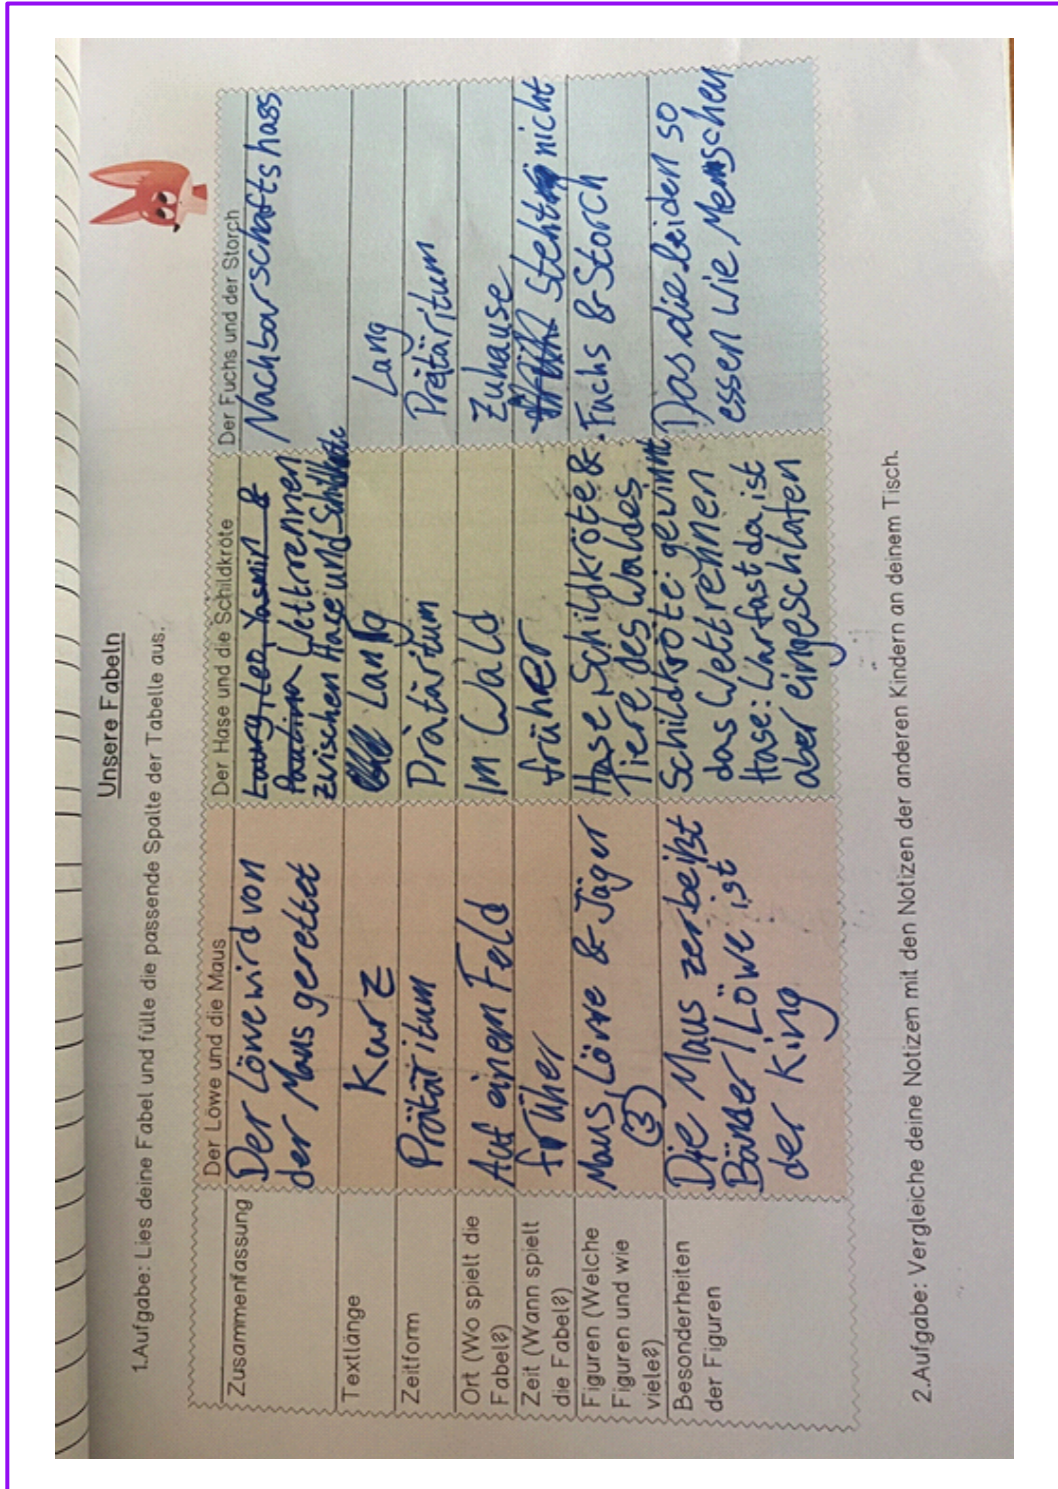 Unsere Fabeln
1.Aufgabe: Lies deine Fabel und fülle die passende Spalte der Tabelle aus.
Der Löwe und die Maus
Der Hase und die Schildkröte
Der Fuchs und der Storch
Zusammenfassung
Der Löwe wird von
der Maus gerettet
Wettrennen
zwischen Hase und Schildkröte
Nachbarschaftshass
Textlänge
Kurz
Lang
Lang
Zeitform
Prätäritum
Prätäritum
Prätäritum
Ort (Wo spielt die
Fabel?)
Auf einem Feld
Im Wald
Zuhause
Zeit (Wann spielt
die Fabel?)
früher
früher
steht nicht
Figuren (Welche
Figuren und wie
viele?)
Maus, Löwe & Jäger
(3)
Hase, Schildkröte &
Tiere des Waldes
Fuchs & Storch
Besonderheiten
der Figuren
Die Maus zerbeißt
Bänder / Löwe ist
der King
Schildkröte: gewinnt
das Wettrennen
Hase: War fast da ist
aber eingeschlafen
Das die beiden so
essen wie Menschen
2.Aufgabe: Vergleiche deine Notizen mit den Notizen der anderen Kindern an deinem Tisch.